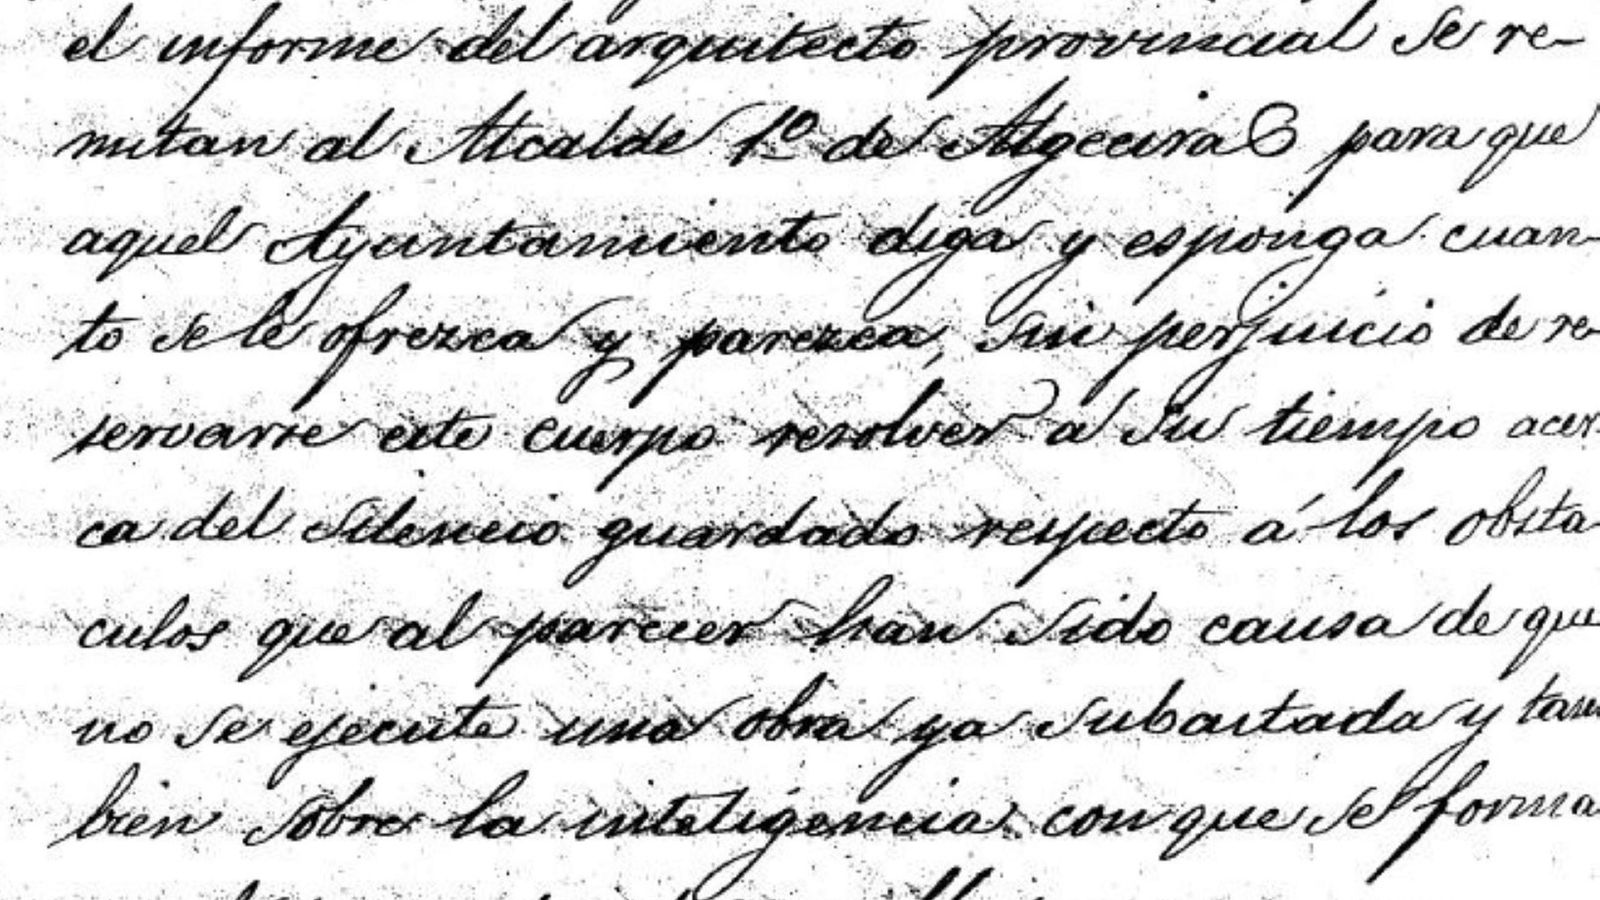 el informe del arquitecto provincial se re-
mitan al Alcalde 1º de Algeciras para que
aquel Ayuntamiento diga y esponga cuan-
to se le ofrezca y parezca, sin perjuicio de re-
servarse este cuerpo resolver a su tiempo acer-
ca del silencio guardado respecto á los obsta-
culos que al parecer han sido causa de que
no se ejecute una obra ya subastada y tam
bien sobre la inteligencia con que se forma